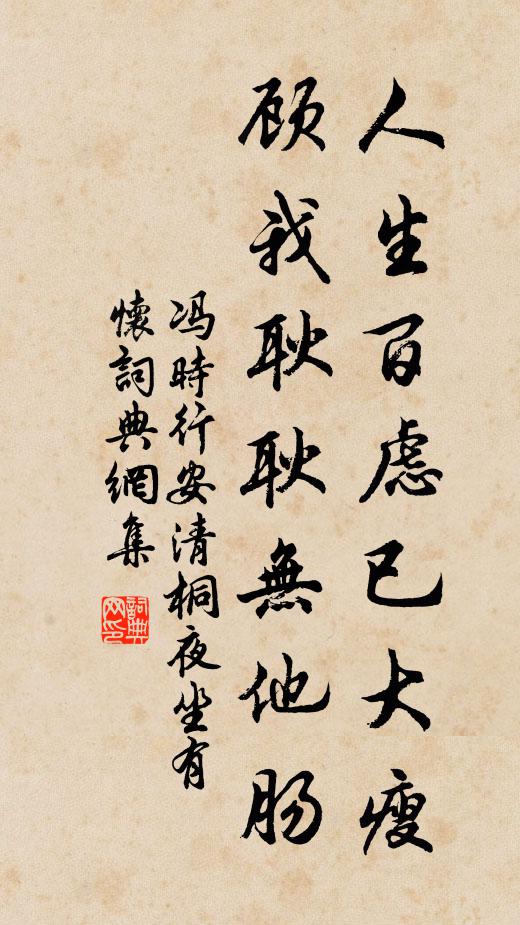 人生百慮已大瘦
顾我耿耿無他肠
冯時行安清桐夜坐有
懷詞典網集
詞典网印